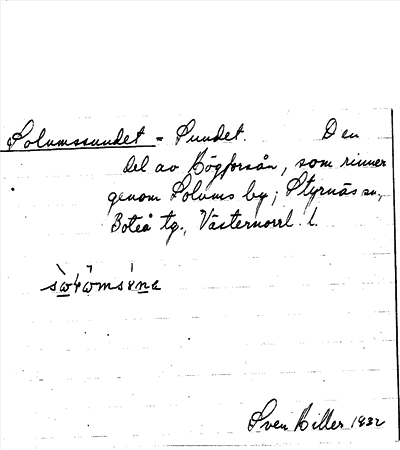 Solumssundet = Sundet. Den
del av Högforsån, som rinner
genom Solums by; Styrnäs sn,
Boteå tg., Västernorrl. l.
Sven Hiller 1932